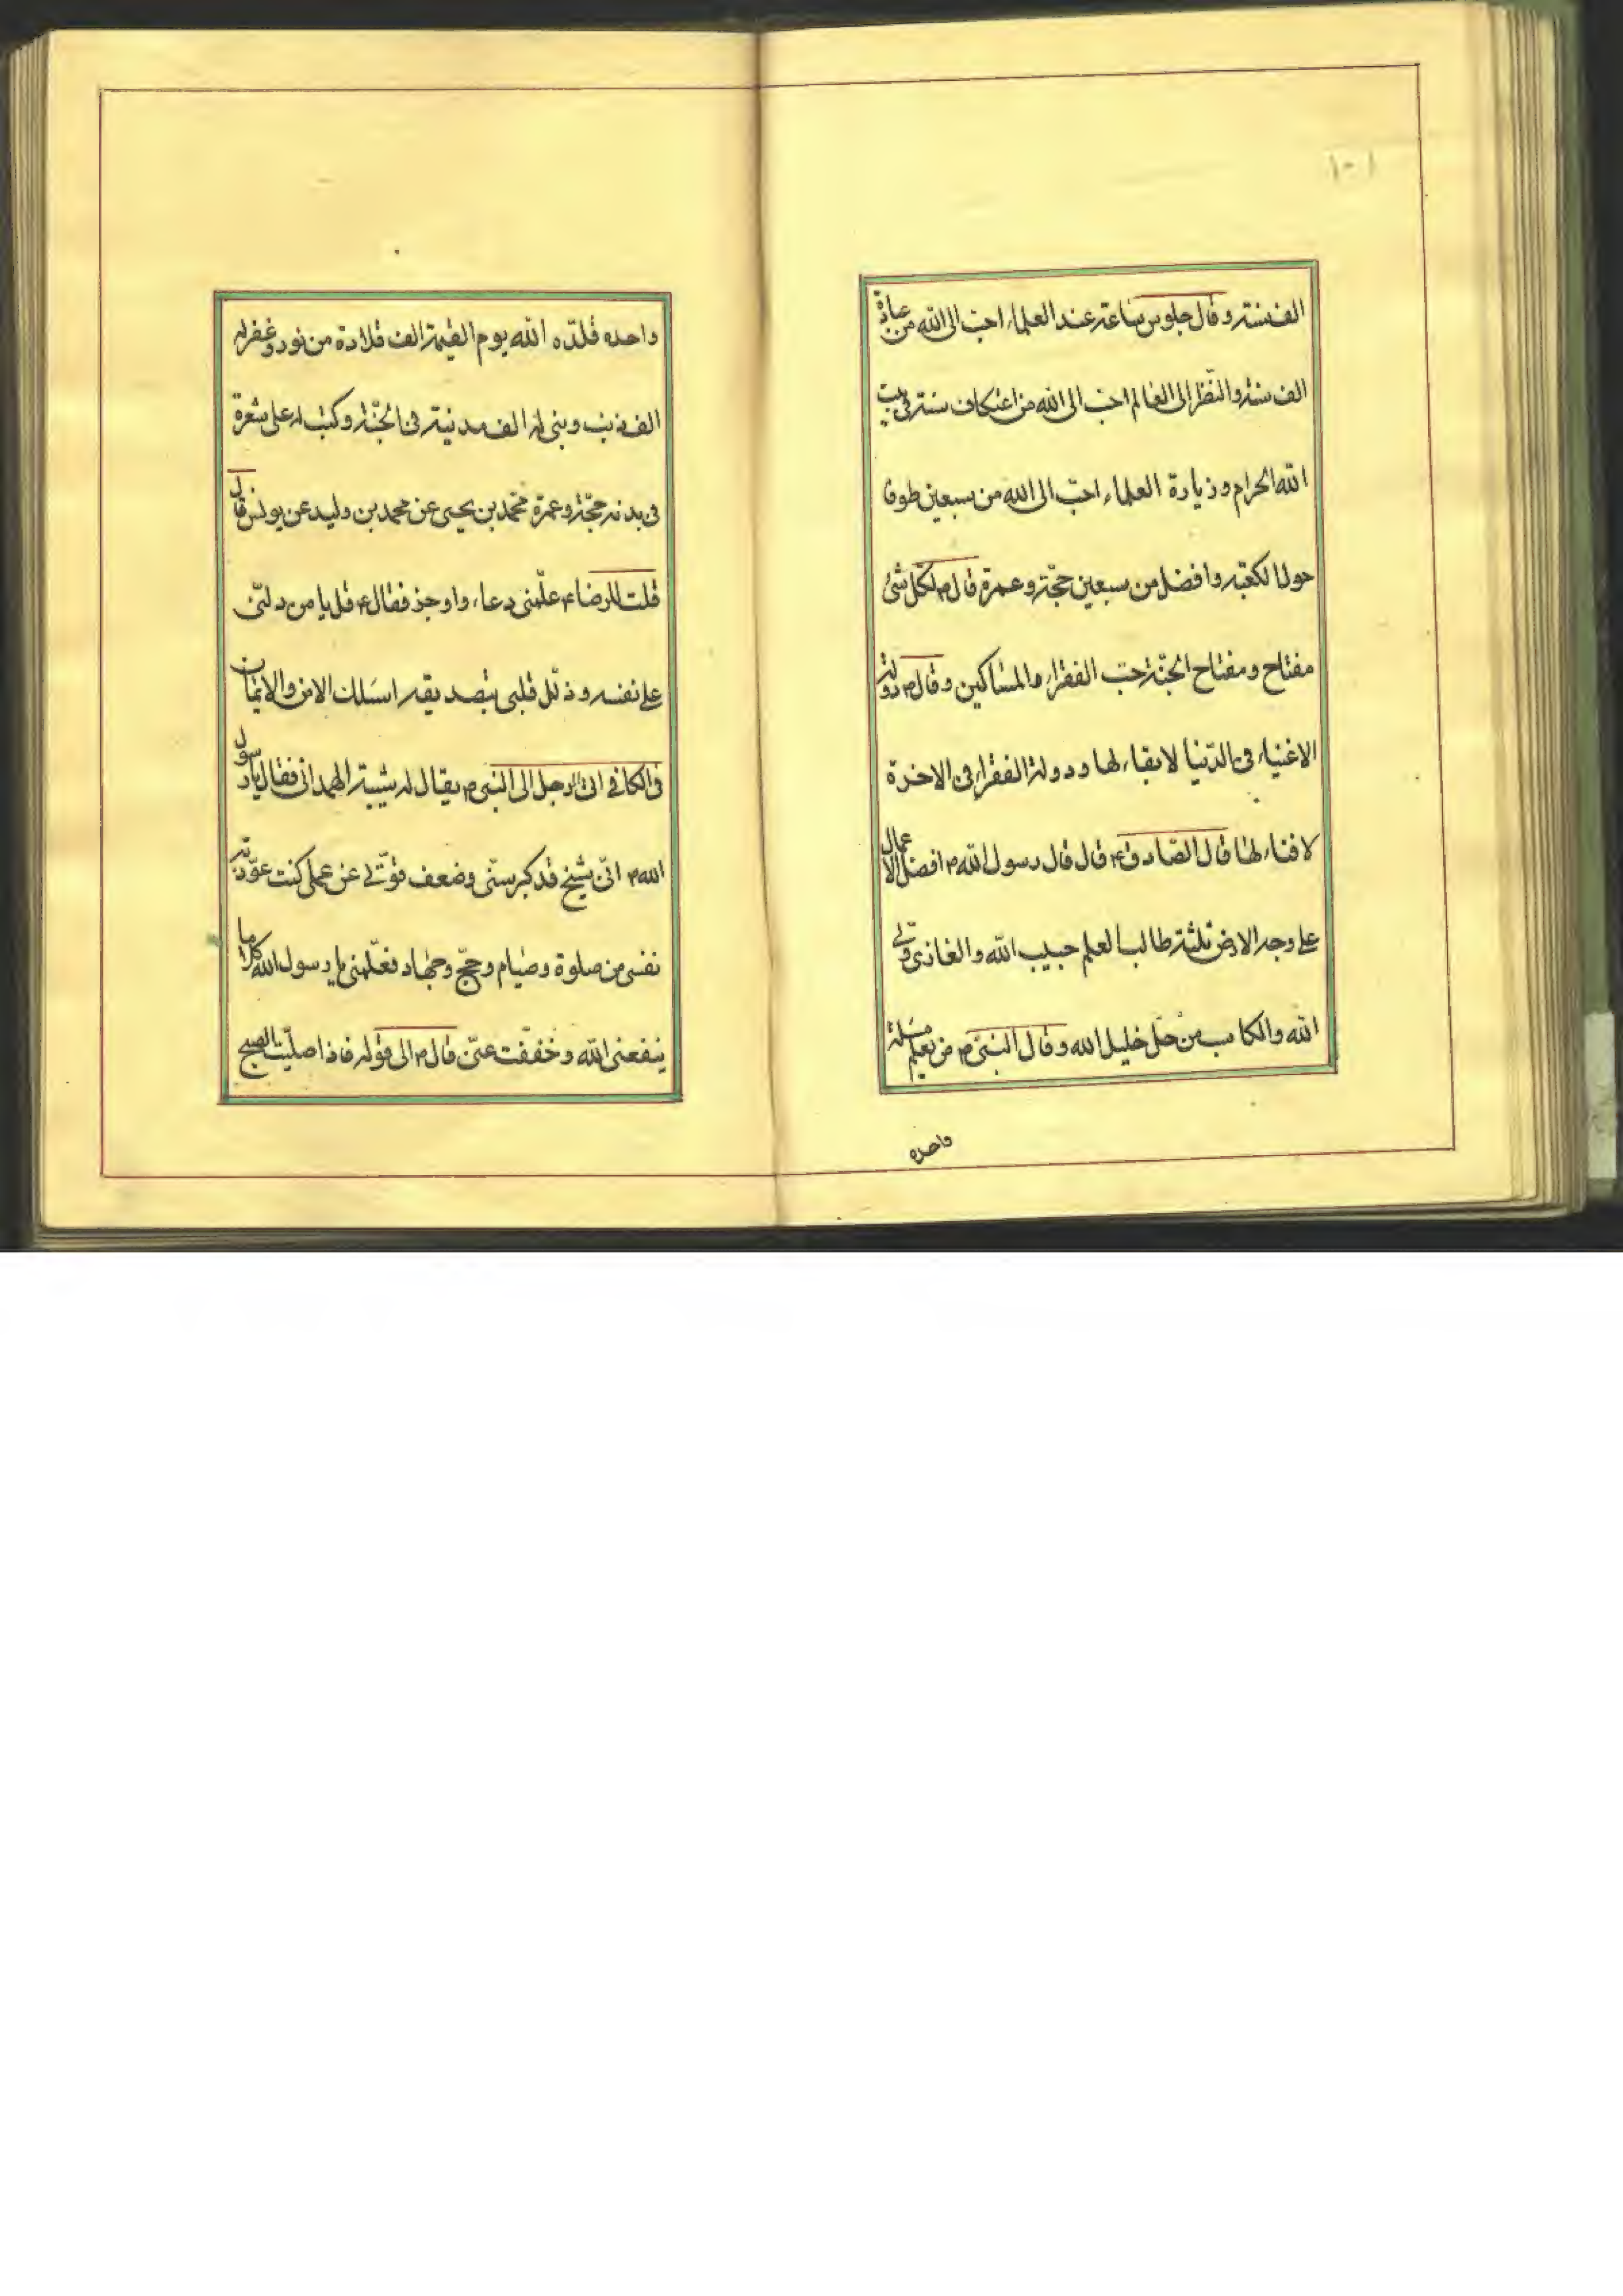 ١٠١
الف سنة و قال جلوس ساعة عند العلماء احبّ الى الله من عبادة
الف سنة والنّظر الى العالم احبّ الى الله من اعتكاف سنة فى بيت
الله الحرام و زيارة العلماء احبّ الى الله من سبعين طوفا
حول الكعبة وافضل من سبعين حجّة و عمرة قال ص لكلّ شئ
مفتاح و مفتاح الجنّة حبّ الفقراء والمساكين و قال ص دولة
الاغنياء فى الدّنيا لا بقاء لها و دولة الفقراء فى الاخرة
لا فناء لها قال الصّادق ع قال قال رسول الله ص افضل الاعمال
على وجه الارض ثلثة طالب العلم حبيب الله والغازى ولىّ
الله والكاسب من حلّ خليل الله و قال النبىّ ص من تعلّم مسئلة
واحده
واحده قلّده الله يوم القيمة الف قلادة من نور و غفر له
الف ذنب و بنى له الف مدينة فى الجنّة و كتب له على شعرة
فى بدنه حجّة و عمرة محمّد بن يحيى عن محمد بن وليد عن يونس قال
قلت للرضاء ع علّمنى دعاء واوجز فقال ع قل يا من دلّنى
على نفسه و ذلّل قلبى بتصديقه اسئلك الامن والايمان
فى الكافى اتى الرجل الى النبى ص يقال له شيبة الهمدانى فقال يا رسول
الله ص انّى شيخ قد كبر سنّى وضعف قوّتى عن عمل كنت عوّدته
نفسى من صلوة وصيام وحجّ وجهاد فعلّمنى يا رسول الله كلاما
ينفعنى الله و خفّفت عنّى قال ص الى قوله فاذا صلّيت الصبح